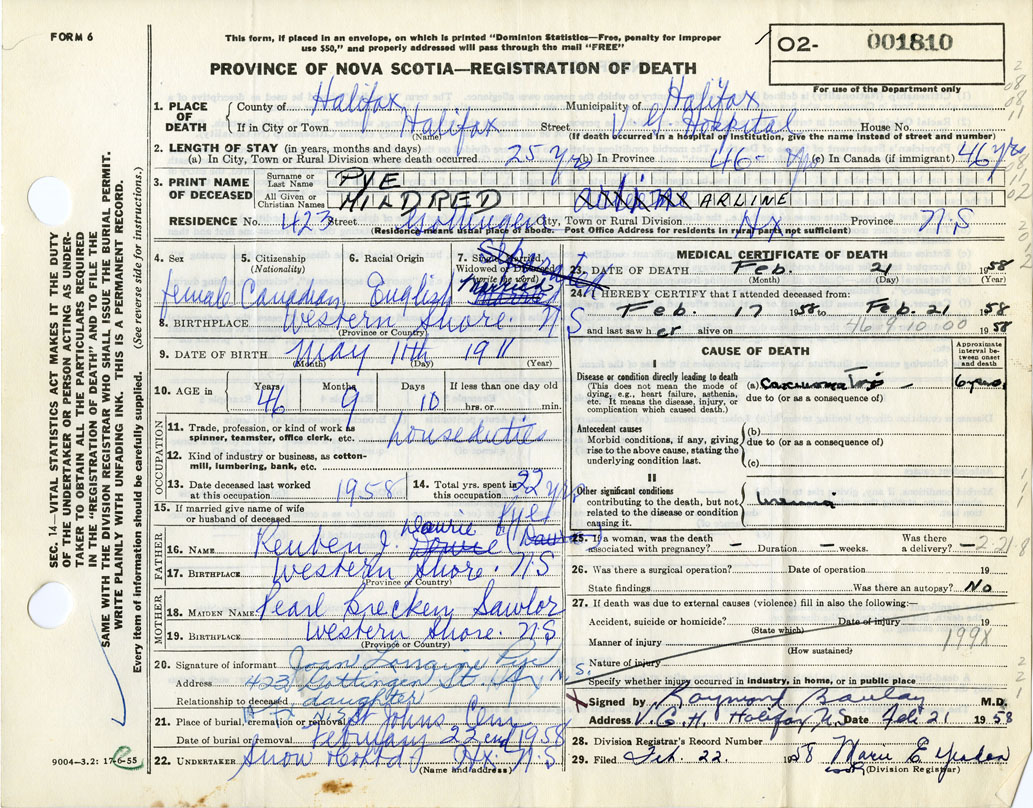 FORM 6
This form, if placed in an envelope, on which is printed "Dominion Statistics—Free, penalty for improper
use $50," and properly addressed will pass through the mail "FREE"
PROVINCE OF NOVA SCOTIA—REGISTRATION OF DEATH
02- 001810
For use of the Department only
1. PLACE OF DEATH
County of Halifax Municipality of Halifax
If in City or Town Halifax Street V. G. Hospital House No.
(Name) (If death occurred in a hospital or institution, give the name instead of street and number)
2. LENGTH OF STAY (in years, months and days)
(a) In City, Town or Rural Division where death occurred 25 yrs (b) In Province 46 - yrs (c) In Canada (if immigrant) 46 yrs
3. PRINT NAME OF DECEASED
Surname or Last Name PYE
All Given or Christian Names MILDRED ARLINE
RESIDENCE No. 423 Street Gottingen City, Town or Rural Division Hx Province N.S
(Residence means usual place of abode. Post Office Address for residents in rural parts not sufficient)
4. Sex female
5. Citizenship (Nationality) Canadian
6. Racial Origin English
7. Single, Married, Widowed or Divorced (write the word)
8. BIRTHPLACE Western Shore. N S
(Province or Country)
9. DATE OF BIRTH May 11th 1911
(Month) (Day) (Year)
10. AGE in Years 46 Months 9 Days 10 If less than one day old hrs. or min.
OCCUPATION
11. Trade, profession or kind of work as spinner, teamster, office clerk, etc. houseduties
12. Kind of industry or business, as cotton-mill, lumbering, bank, etc.
13. Date deceased last worked at this occupation 1958
14. Total yrs. spent in this occupation 22 yrs
15. If married give name of wife or husband of deceased Pye
FATHER
16. NAME Reuben J.
17. BIRTHPLACE Western Shore. N.S
(Province or Country)
MOTHER
18. MAIDEN NAME Pearl Sawlor
19. BIRTHPLACE Western Shore. N.S
(Province or Country)
20. Signature of informant Joan Lorraine Pye
Address 423 Gottingen St Hx N.S.
Relationship to deceased daughter
21. Place of burial, cremation or removal St Johns Cem
Date of burial or removal February 22nd 1958
22. UNDERTAKER Snow Hx. N.S
(Name and address)
9004—3.2: 17-6-55
MEDICAL CERTIFICATE OF DEATH
23. DATE OF DEATH Feb. 21 1958
(Month) (Day) (Year)
24. I HEREBY CERTIFY that I attended deceased from:
Feb. 17 1958 to Feb. 21 1958
and last saw h er alive on 1958
46-9-10-00
CAUSE OF DEATH
Approximate interval between onset and death
I
Disease or condition directly leading to death
(This does not mean the mode of dying, e.g., heart failure, asthenia, etc. It means the disease, injury, or complication which caused death.)
(a) Carcinoma 6 years
due to (or as a consequence of)
Antecedent causes
Morbid conditions, if any, giving rise to the above cause, stating the underlying condition last.
(b)
due to (or as a consequence of)
(c)
II
Other significant conditions
contributing to the death, but not related to the disease or condition causing it.
25. If a woman, was the death associated with pregnancy? — Duration — weeks. Was there a delivery? —
26. Was there a surgical operation? Date of operation 19
State findings Was there an autopsy? No
27. If death was due to external causes (violence) fill in also the following:—
Accident, suicide or homicide? Date of injury 19
(State which)
Manner of injury 199X
(How sustained)
Nature of injury
Specify whether injury occurred in industry, in home, or in public place
Signed by Raymond M.D.
Address V. G. H. Halifax N.S Date Feb 21 1958
28. Division Registrar's Record Number
29. Filed Feb. 22. 1958 Marie E
(Division Registrar)
SEC. 14—VITAL STATISTICS ACT MAKES IT THE DUTY
OF THE UNDERTAKER OR PERSON ACTING AS UNDER-
TAKER TO OBTAIN ALL THE PARTICULARS REQUIRED
IN THE "REGISTRATION OF DEATH" AND TO FILE THE
SAME WITH THE DIVISION REGISTRAR WHO SHALL ISSUE THE BURIAL PERMIT.
WRITE PLAINLY WITH UNFADING INK. THIS IS A PERMANENT RECORD.
Every item of information should be carefully supplied. (See reverse side for instructions.)